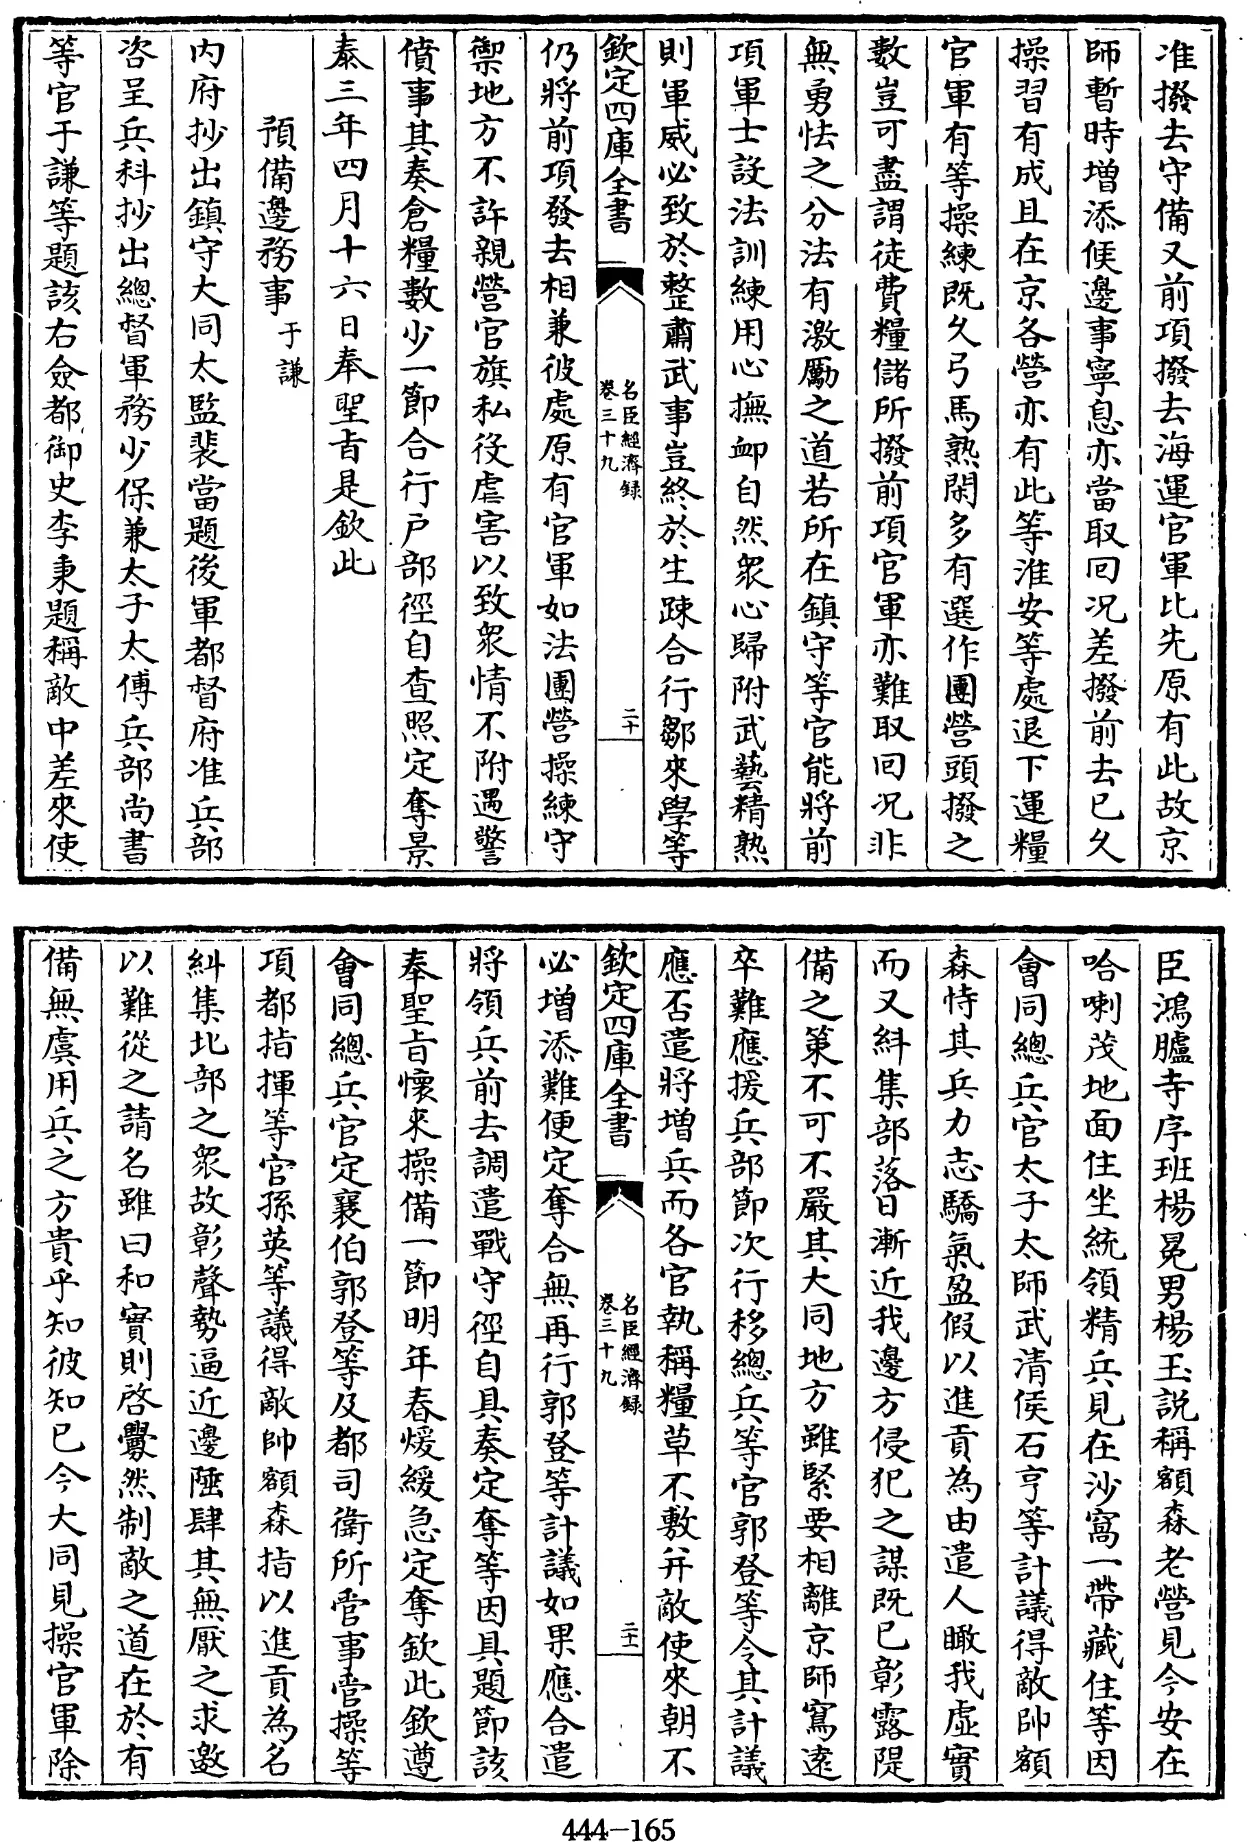 准撥去守備又前項撥去海運官軍比先原有此故京
師暫時增添候邊事寧息亦當取回况差撥前去已久
操習有成且在京各營亦有此等淮安等處退下運糧
官軍有等操練既久弓馬熟閑多有選作團營頭撥之
數豈可盡謂徒費糧儲所撥前項官軍亦難取回况非
無勇怯之分法有激勵之道若所在鎮守等官能將前
項軍士設法訓練用心撫卹自然衆心歸附武藝精熟
則軍威必致於整肅武事豈終於生踈合行鄒來學等
欽定四庫全書
名臣經濟録
卷三十九
二十
仍將前項發去相兼彼處原有官軍如法團營操練守
禦地方不許親營官旗私役虐害以致衆情不附遇警
僨事其奏倉糧數少一節合行户部徑自查照定奪景
泰三年四月十六日奉聖旨是欽此
預備邊務事 于謙
内府抄出鎮守大同太監裴當題後軍都督府准兵部
咨呈兵科抄出總督軍務少保兼太子太傅兵部尚書
等官于謙等題該右僉都御史李秉題稱敵中差來使
臣鴻臚寺序班楊冕男楊玉説稱額森老營見今安在
哈喇茂地面住坐統領精兵見在沙窩一帶藏住等因
會同總兵官太子太師武清侯石亨等計議得敵帥額
森恃其兵力志驕氣盈假以進貢為由遣人瞰我虚實
而又糾集部落日漸近我邊方侵犯之謀既已彰露隄
備之策不可不嚴其大同地方雖緊要相離京師寫逺
卒難應援兵部節次行移總兵等官郭登等令其計議
應否遣將增兵而各官執稱糧草不敷并敵使來朝不
欽定四庫全書
名臣經濟録
卷三十九
二十一
必增添難便定奪合無再行郭登等計議如果應合遣
將領兵前去調遣戰守徑自具奏定奪等因具題節該
奉聖旨懷來操備一節明年春煖緩急定奪欽此欽遵
會同總兵官定襄伯郭登等及都司衛所管事管操等
項都指揮等官孫英等議得敵帥額森指以進貢為名
糾集北部之衆故彰聲勢逼近邊陲肆其無厭之求邀
以難從之請名雖曰和實則啓釁然制敵之道在於有
備無虞用兵之方貴乎知彼知已今大同見操官軍除
444-165